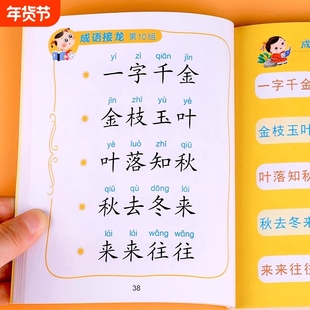 年货节
成语接龙 第10组
yí zì qiān jīn
一字千金
jīn zhī yù yè
金枝玉叶
yè luò zhī qiū
叶落知秋
qiū qù dōng lái
秋去冬来
lái lái wǎng wǎng
来来往往
38
成
一字千金
金枝玉叶
叶落知秋
秋去冬来
来来往往